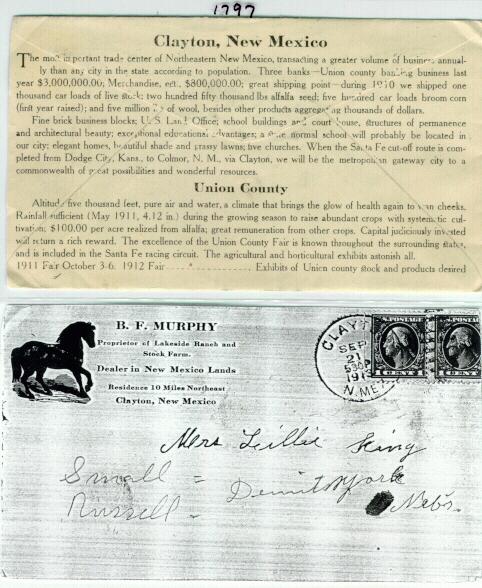 1797
Clayton, New Mexico
The most important trade center of Northeastern New Mexico, transacting a greater volume of business annual-
ly than any city in the state according to population. Three banks—Union county banking business last
year $3,000,000.00; Merchandise, ect., $800,000.00; great shipping point—during 1910 we shipped one
thousand car loads of live stock; two hundred fifty thousand lbs alfalfa seed; five hundred car loads broom corn
(first year raised); and five million lbs of wool, besides other products aggregating thousands of dollars.
Fine brick business blocks; U. S. Land Office; school buildings and court house, structures of permanence
and architectural beauty; exceptional educational advantages; a state normal school will probably be located in
our city; elegant homes, beautiful shade and grassy lawns; five churches. When the Santa Fe cut-off route is com-
pleted from Dodge City, Kans., to Colmor, N. M., via Clayton, we will be the metropolitan gateway city to a
commonwealth of great possibilities and wonderful resources.
Union County
Altitude five thousand feet, pure air and water, a climate that brings the glow of health again to wan cheeks.
Rainfall sufficient (May 1911, 4.12 in.) during the growing season to raise abundant crops with systematic cul-
tivation; $100.00 per acre realized from alfalfa; great remuneration from other crops. Capital judiciously invested
will return a rich reward. The excellence of the Union County Fair is known throughout the surrounding states,
and is included in the Santa Fe racing circuit. The agricultural and horticultural exhibits astonish all.
1911 Fair October 3-6. 1912 Fair ....-*-............ Exhibits of Union county stock and products desired
B. F. MURPHY
Proprietor of Lakeside Ranch and
Stock Farm.
Dealer in New Mexico Lands
Residence 10 Miles Northeast
Clayton, New Mexico
CLAYT
SEP
21
530P
191
N.MEX
U.S. POSTAGE
1 CENT 1
S. POSTAGE
CENT
Mrs Lillie King
Small =
York
Russell -
Nebs.